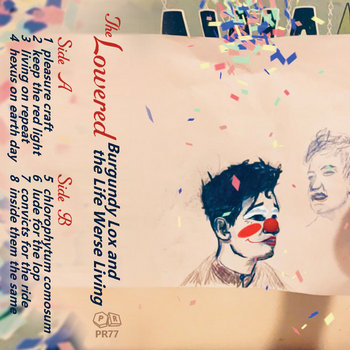 The Lowered
Burgundy Lox and
the Life Werse Living
Side A
1 pleasure craft
2 keep the red light
3 living on repeat
4 hexus on earth day
Side B
5 chlorophytum comosum
6 lude for the lop
7 convicts for the ride
8 inside them the same
P R
PR77